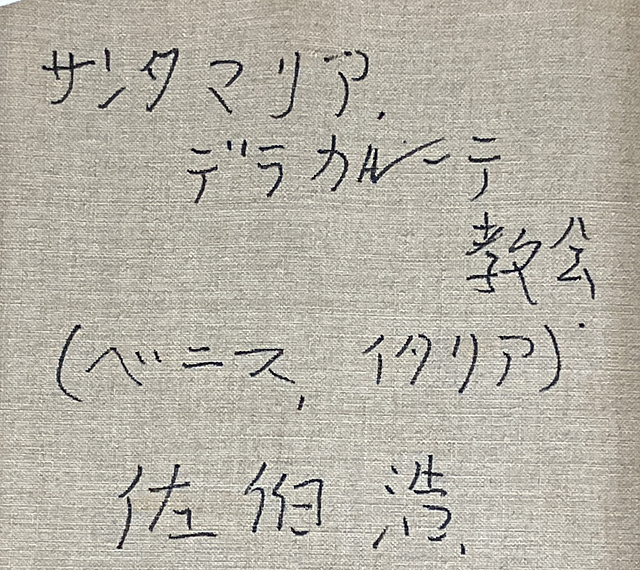 サンタマリア,
デラカルーテ
教会
(ベニス, イタリア)
佐伯 浩,